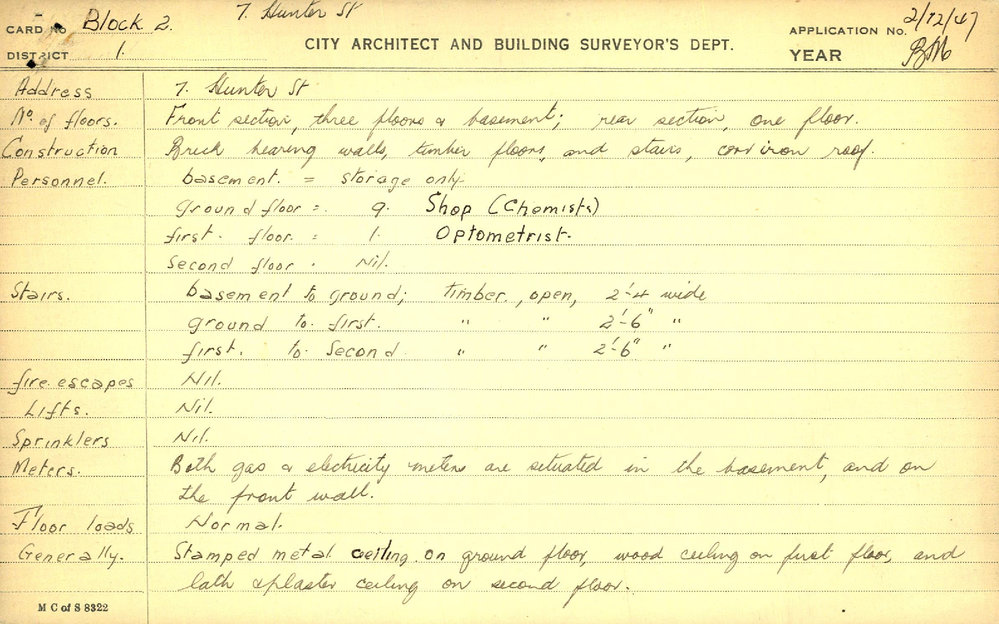 7. Hunter St
CARD No Block 2.
APPLICATION No. 2/12/47
DISTRICT 1
CITY ARCHITECT AND BUILDING SURVEYOR'S DEPT.
YEAR
Address 7. Hunter St
No. of floors. Front section, three floors & basement; rear section, one floor.
Construction Brick bearing walls, timber floors, and stairs, corr iron roof.
Personnel. basement. = storage only.
ground floor = 9. Shop (Chemists)
first. floor. = 1. Optometrist.
Second floor. Nil.
Stairs. basement to ground; timber, open, 2'-4 wide
ground to first. " " 2'-6" "
first. to second " " 2'-6" "
fire escapes Nil.
Lifts. Nil.
Sprinklers Nil.
Meters. Both gas & electricity meters are situated in the basement, and on
the front wall.
Floor loads Normal.
Generally. Stamped metal ceiling on ground floor, wood ceiling on first floor, and
lath & plaster ceiling on second floor.
M C of S 8322